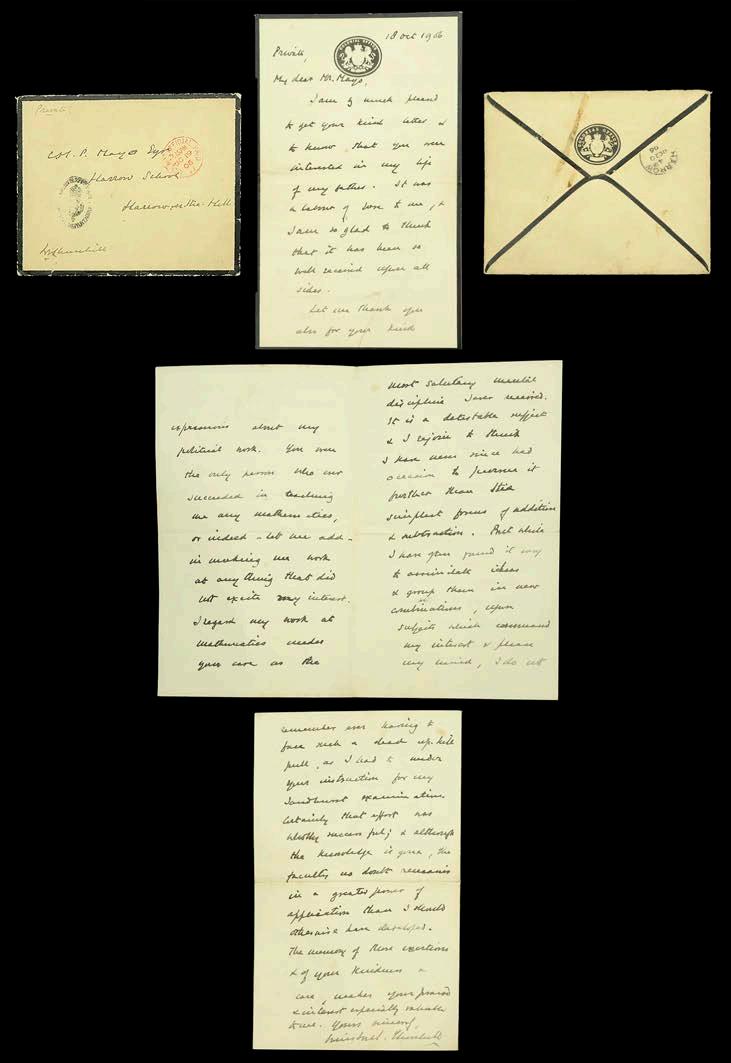 Private
C.H.P. Mayo Esqr
Harrow School
Harrow-on-the-Hill
WSChurchill
OFFICIAL PAID
OC 19
06
18 Oct 1906
COLONIAL OFFICE
Private,
My dear Mr. Mayo,
I am so much pleased
to get your kind letter &
to know that you were
interested in my life
of my father. It was
a labour of love to me, &
I am so glad to think
that it has been so
well received upon all
sides.
Let me thank you
also for your kind
COLONIAL OFFICE
HARROW
OC 20
06
expressions about my
political work. You were
the only person who ever
succeeded in teaching
me any mathematics,
or indeed – let me add –
in making me work
at anything that did
not excite my interest.
I regard my work at
mathematics under
your care as the
most salutary mental
discipline I ever received.
It is a detestable subject
& I rejoice to think
I have never since had
occasion to pursue it
further than the
simplest forms of addition
& subtraction. But while
I have often found it easy
to assimilate ideas
& group them in new
combinations, upon
subjects which command
my interest & please
my mind, I do not
remember ever having to
face such a dead up-hill
pull, as I had to under
your instruction for my
Sandhurst examination.
Certainly that effort was
wholly successful; & although
the knowledge is gone, the
faculty no doubt remains
in a greater power of
application than I should
otherwise have developed.
The memory of those exertions
& of your kindness &
care, makes your praise
& interest especially valuable
to me. Yours sincerely,
Winston S. Churchill